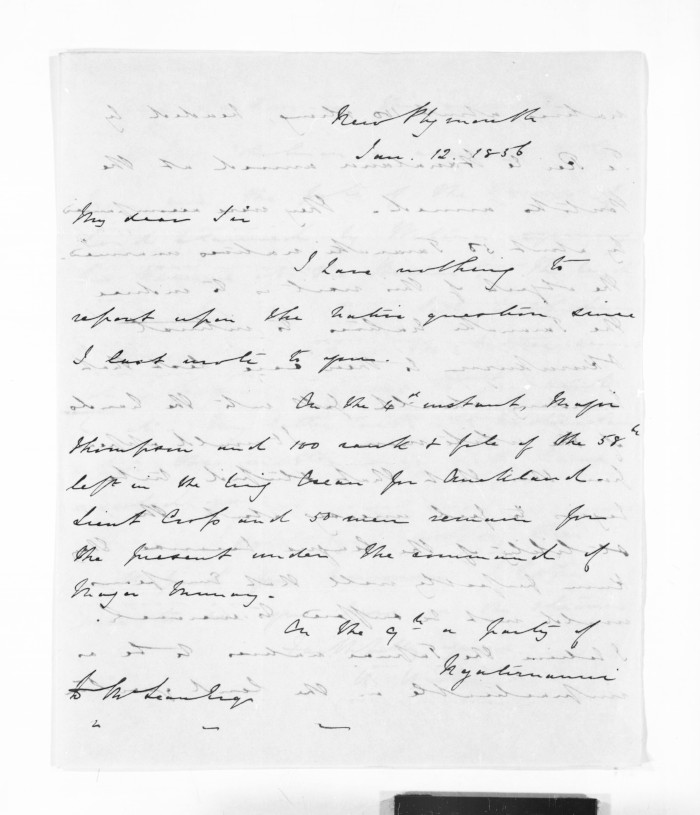 New Plymouth
Jan. 12. 1856
My dear Sir
I have nothing to
report upon the Native question since
I last wrote to you.
On the 4th instant, Major
Thompson and 100 rank & file of the 58th
left in the Brig Ocean for Auckland.
Lieut Cross and 50 men remain for
the present under the command of
Major Murray.
On the 9th a party of
Ngatiruanui
McLean Esq